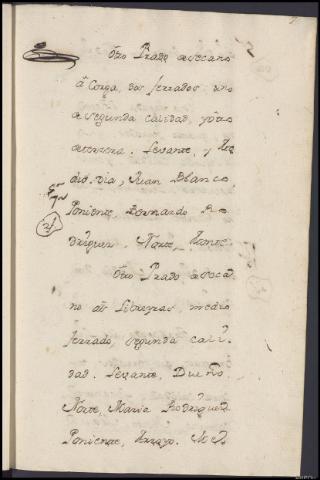 Otro Prado a Secano
á Corga, dos ferrados uno
de segunda calidad, y otro
de tercera. Levante, y
dio dia, Juan Blanco
Poniente, Bernardo Ro
driguez. Norte,
Otro Prado a Seca
no medio
ferrado, segunda cali
dad. Levante, Dueño.
Norte, Maria Rodriguez
Poniente, Arroyo. Me